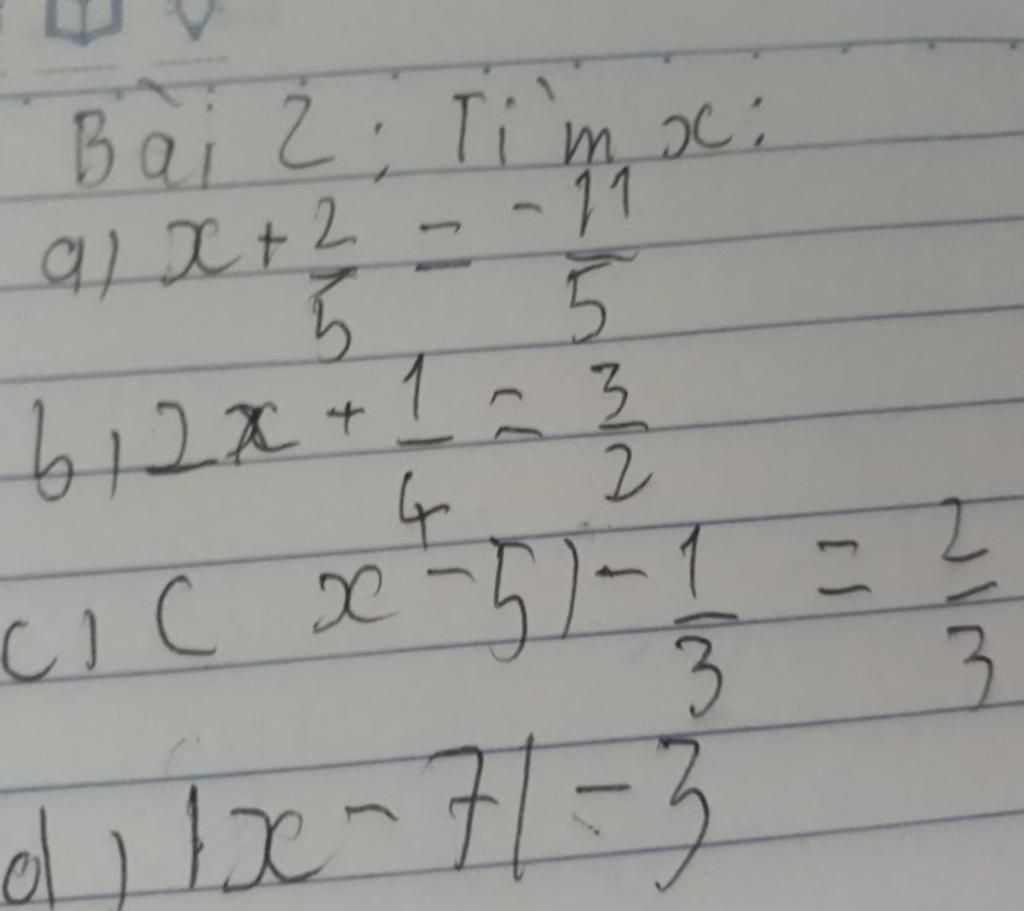 Bài 2: Tìm x:
a) x + 2/5 = -11/5
b) 2x + 1/4 = 3/2
c) (x - 5) - 1/3 = 2/3
d) |x - 7| = 3